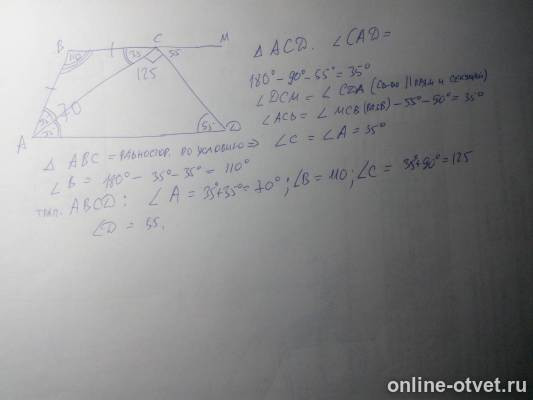 B 110° 35 C 55 M
125
70
A 35 35 55° D
△ ACD. ∠CAD =
180° - 90° - 55° = 35°
∠DCM = ∠CDA (св-во || прям и секущей)
∠ACB = ∠MCB (разв) - 55° - 90° = 35°
△ ABC = равностор. по условию => ∠C = ∠A = 35°
∠B = 180° - 35° - 35° = 110°
трап. ABCD: ∠A = 35°+35° = 70°; ∠B = 110; ∠C = 35°+90° = 125
∠D = 55.
online-otvet.ru